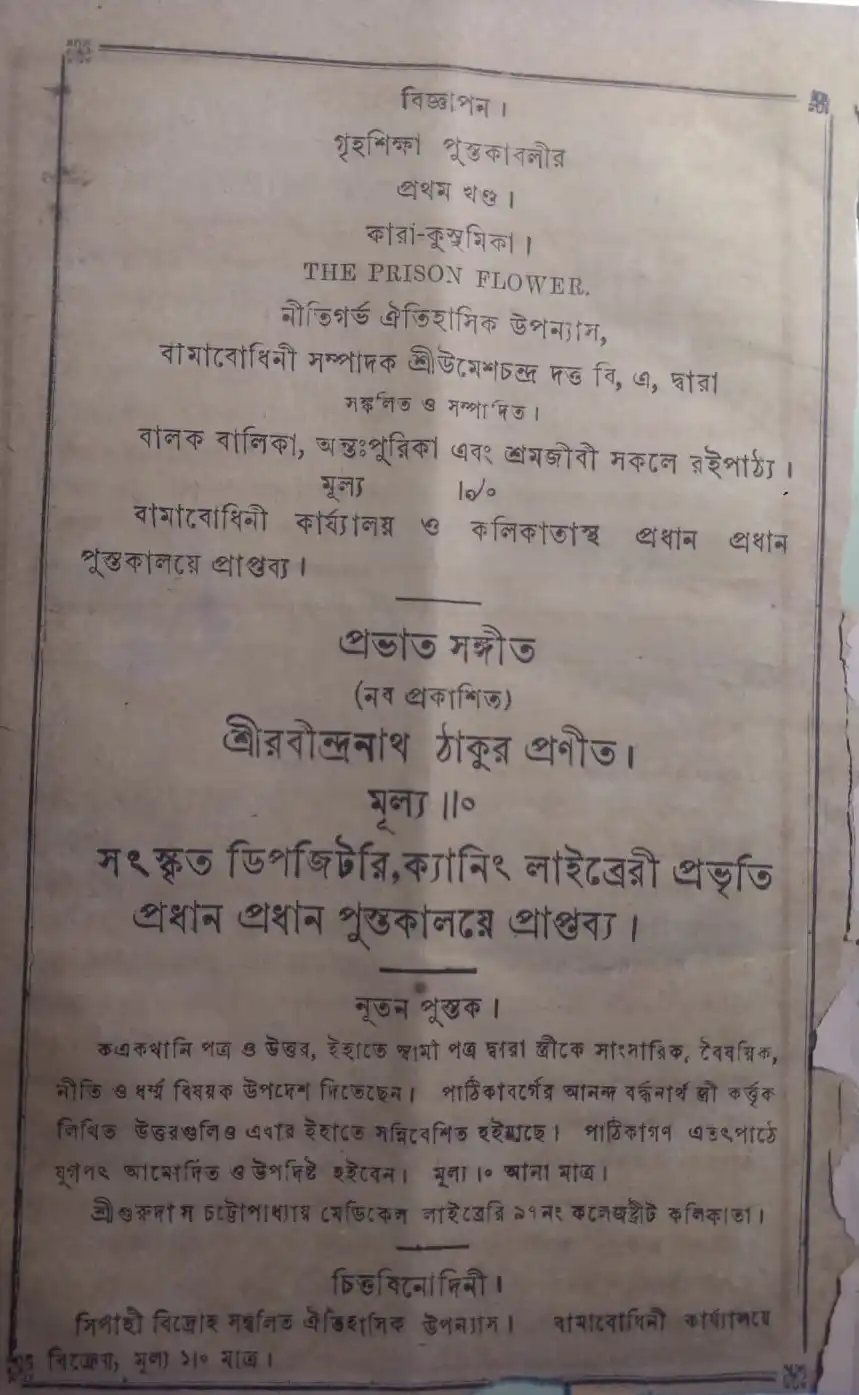 বিজ্ঞাপন।
গৃহশিক্ষা পুস্তকাবলীর
প্রথম খণ্ড।
কারা-কুসুমিকা।
THE PRISON FLOWER.
নীতিগর্ভ ঐতিহাসিক উপন্যাস,
বামাবোধিনী সম্পাদক শ্রীউমেশচন্দ্র দত্ত বি, এ, দ্বারা
সঙ্কলিত ও সম্পাদিত।
বালক বালিকা, অন্তঃপুরিকা এবং শ্রমজীবী সকলে রইপাঠ্য।
মূল্য ৷৶৹
বামাবোধিনী কার্য্যালয় ও কলিকাতাস্থ প্রধান প্রধান
পুস্তকালয়ে প্রাপ্তব্য।
প্রভাত সঙ্গীত
(নব প্রকাশিত)
শ্রীরবীন্দ্রনাথ ঠাকুর প্রণীত।
মূল্য ॥০
সংস্কৃত ডিপজিটরি,ক্যানিং লাইব্রেরী প্রভৃতি
প্রধান প্রধান পুস্তকালয়ে প্রাপ্তব্য।
নূতন পুস্তক।
কএকখানি পত্র ও উত্তর, ইহাতে স্বামী পত্র দ্বারা স্ত্রীকে সাংসারিক, বৈষয়িক,
নীতি ও ধর্ম্ম বিষয়ক উপদেশ দিতেছেন। পাঠিকাবর্গের আনন্দ বর্দ্ধনার্থ স্ত্রী কর্ত্তৃক
লিখিত উত্তরগুলিও এবার ইহাতে সন্নিবেশিত হইয়াছে। পাঠিকাগণ এতৎপাঠে
যুগপৎ আমোদিত ও উপদিষ্ট হইবেন। মূল্য ।০ আনা মাত্র।
শ্রীগুরুদাস চট্টোপাধ্যায় মেডিকেল লাইব্রেরি ৯৭নং কলেজষ্ট্রীট কলিকাতা।
চিত্তবিনোদিনী।
সিপাহী বিদ্রোহ সম্বলিত ঐতিহাসিক উপন্যাস। বামাবোধিনী কার্য্যালয়ে
বিক্রেয়, মূল্য ১।০ মাত্র।